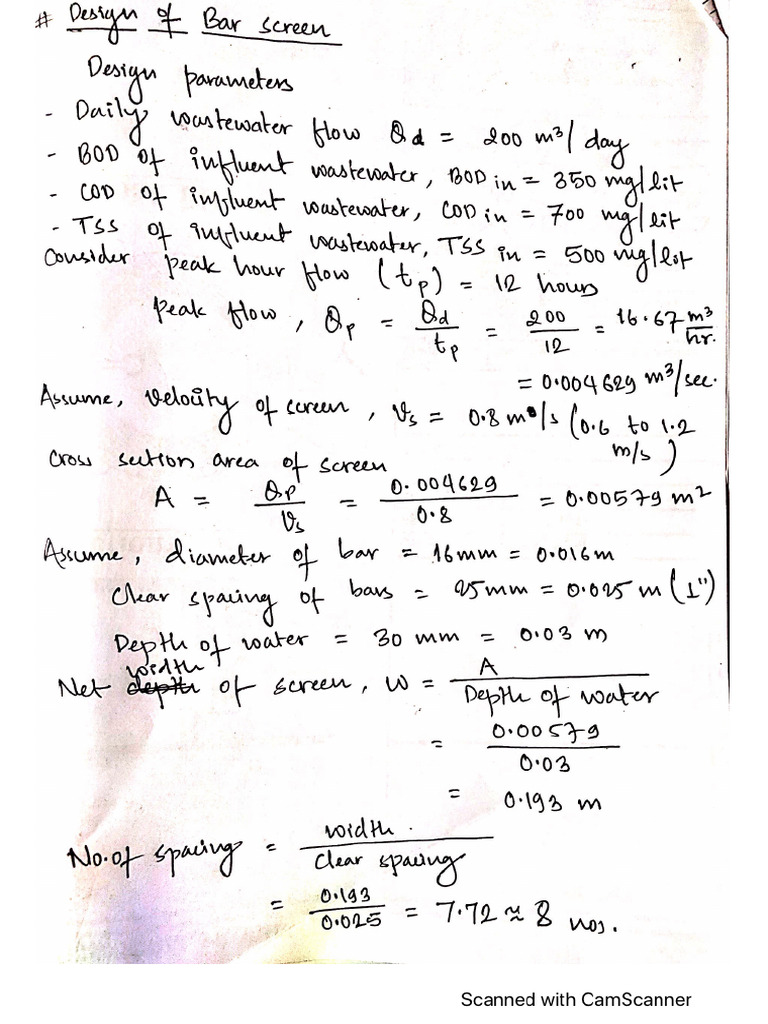 # Design of Bar screen
Design parameters
- Daily wastewater flow Qd = 200 m³/day
- BOD of influent wastewater, BOD in = 350 mg/lit
- COD of influent wastewater, COD in = 700 mg/lit
- TSS of influent wastewater, TSS in = 500 mg/lit
Consider peak hour flow (tp) = 12 hours
peak flow, Qp = Qd/tp = 200/12 = 16.67 m³/hr.
= 0.004629 m³/sec.
Assume, velocity of screen, Vs = 0.8 m/s (0.6 to 1.2 m/s)
Cross section area of screen
A = Qp/Vs = 0.004629/0.8 = 0.00579 m²
Assume, diameter of bar = 16mm = 0.016m
Clear spacing of bars = 25mm = 0.025 m (1")
Depth of water = 30 mm = 0.03 m
Net width of screen, W = A/Depth of water
= 0.00579/0.03
= 0.193 m
No. of spacing = width/clear spacing
= 0.193/0.025 = 7.72 ≈ 8 nos.
Scanned with CamScanner